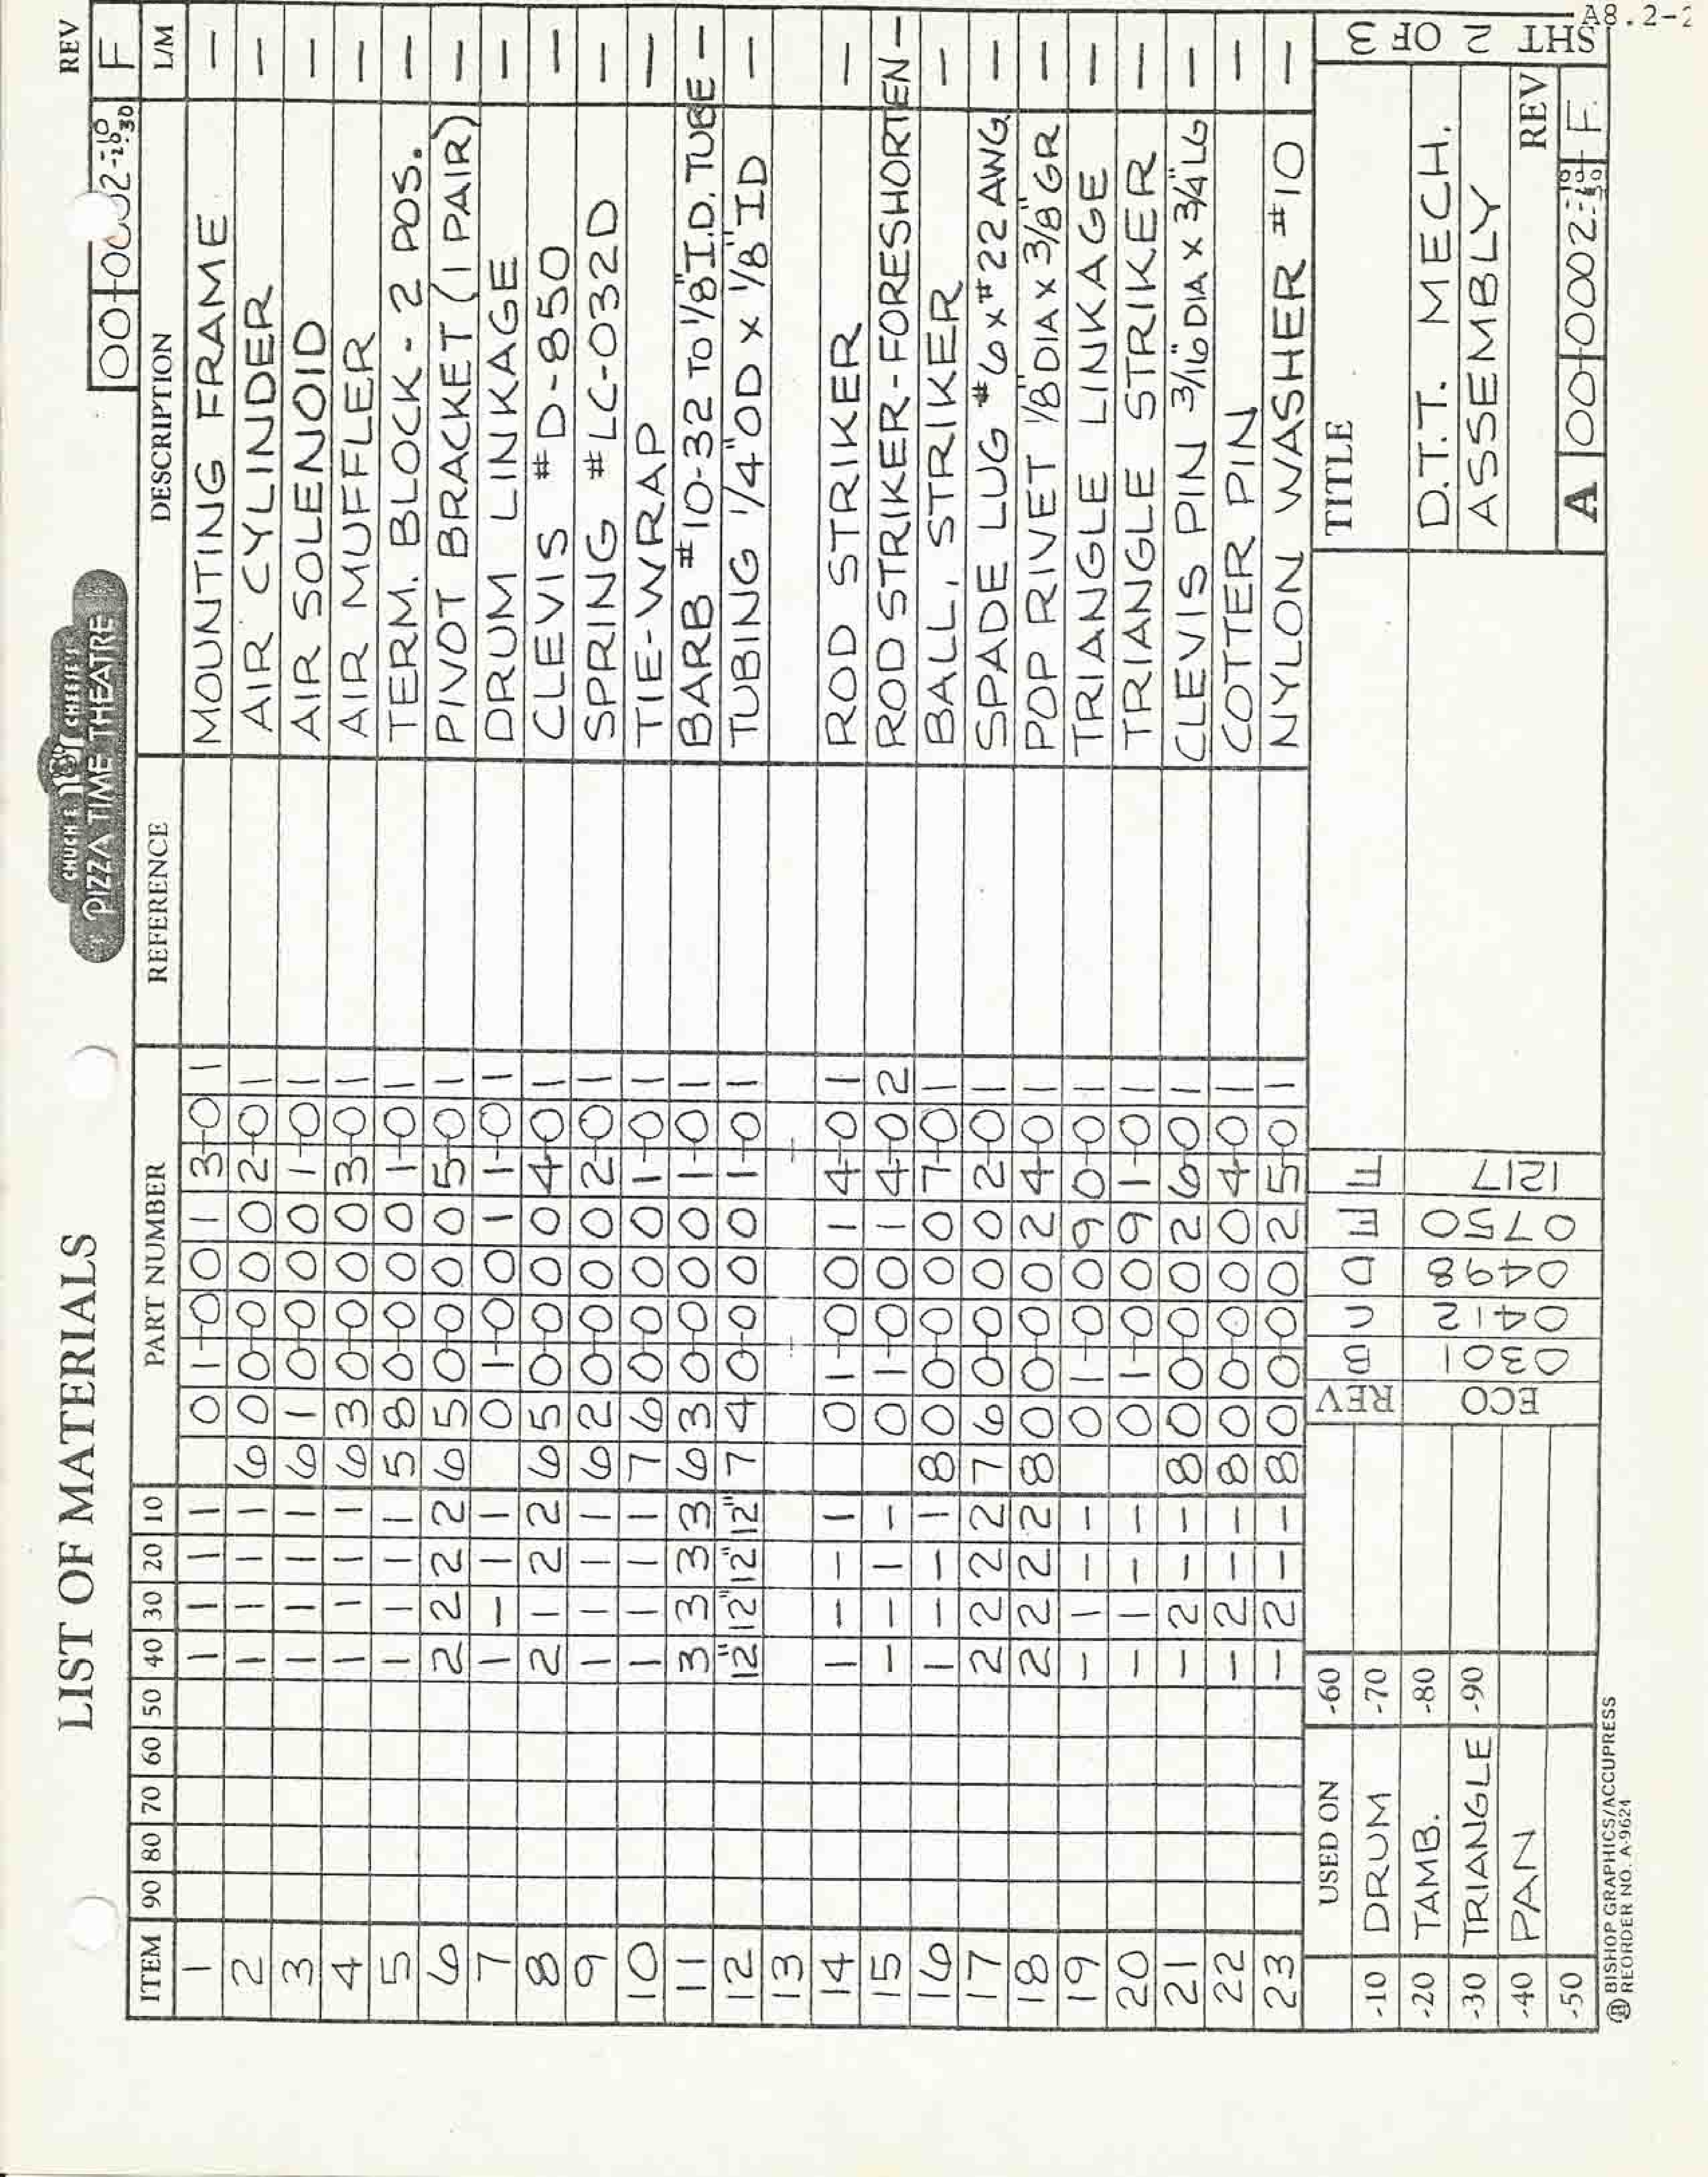 LIST OF MATERIALS
CHUCK E. CHEESE'S
PIZZA TIME THEATRE
REV
00-0002-10 -20 -30 F
ITEM 90 80 70 60 50 40 30 20 10 PART NUMBER REFERENCE DESCRIPTION L/M
1 1 1 1 1 01-0013-01 MOUNTING FRAME —
2 1 1 1 1 600-0002-01 AIR CYLINDER —
3 1 1 1 1 610-0001-01 AIR SOLENOID —
4 1 1 1 1 630-0003-01 AIR MUFFLER —
5 1 1 1 1 580-0001-01 TERM. BLOCK - 2 POS. —
6 2 2 2 2 650-0005-01 PIVOT BRACKET (1 PAIR) —
7 1 - 1 1 01-0011-01 DRUM LINKAGE —
8 2 1 2 2 650-0004-01 CLEVIS #D-850 —
9 1 1 1 1 620-0002-01 SPRING #LC-032D —
10 1 1 1 1 760-0001-01 TIE-WRAP —
11 3 3 3 3 630-0001-01 BARB #10-32 TO 1/8" I.D. TUBE —
12 12" 12" 12" 12" 740-0001-01 TUBING 1/4" OD x 1/8" ID —
13
14 1 - - 1 01-0014-01 ROD STRIKER —
15 - - 1 - 01-0014-02 ROD STRIKER-FORESHORTEN —
16 1 - - 1 800-0007-01 BALL, STRIKER —
17 2 2 2 2 760-0002-01 SPADE LUG #6 x #22 AWG. —
18 2 2 2 2 800-0024-01 POP RIVET 1/8" DIA x 3/8" GR —
19 - 1 - - 01-0090-01 TRIANGLE LINKAGE —
20 - 1 - - 01-0091-01 TRIANGLE STRIKER —
21 - 2 - - 800-0026-01 CLEVIS PIN 3/16" DIA x 3/4" LG —
22 - 2 - - 800-0004-01 COTTER PIN —
23 - 2 - - 800-0025-01 NYLON WASHER #10 —
USED ON -60
-10 DRUM -70
-20 TAMB. -80
-30 TRIANGLE -90
-40 PAN
-50
REV B C D E F
ECO 0301 0412 0498 0750 1217
TITLE
D.T.T. MECH.
ASSEMBLY
REV
A 00-0002- F.
SHT 2 OF 3
A8.2-2
BISHOP GRAPHICS/ACCUPRESS
REORDER NO. A-9624